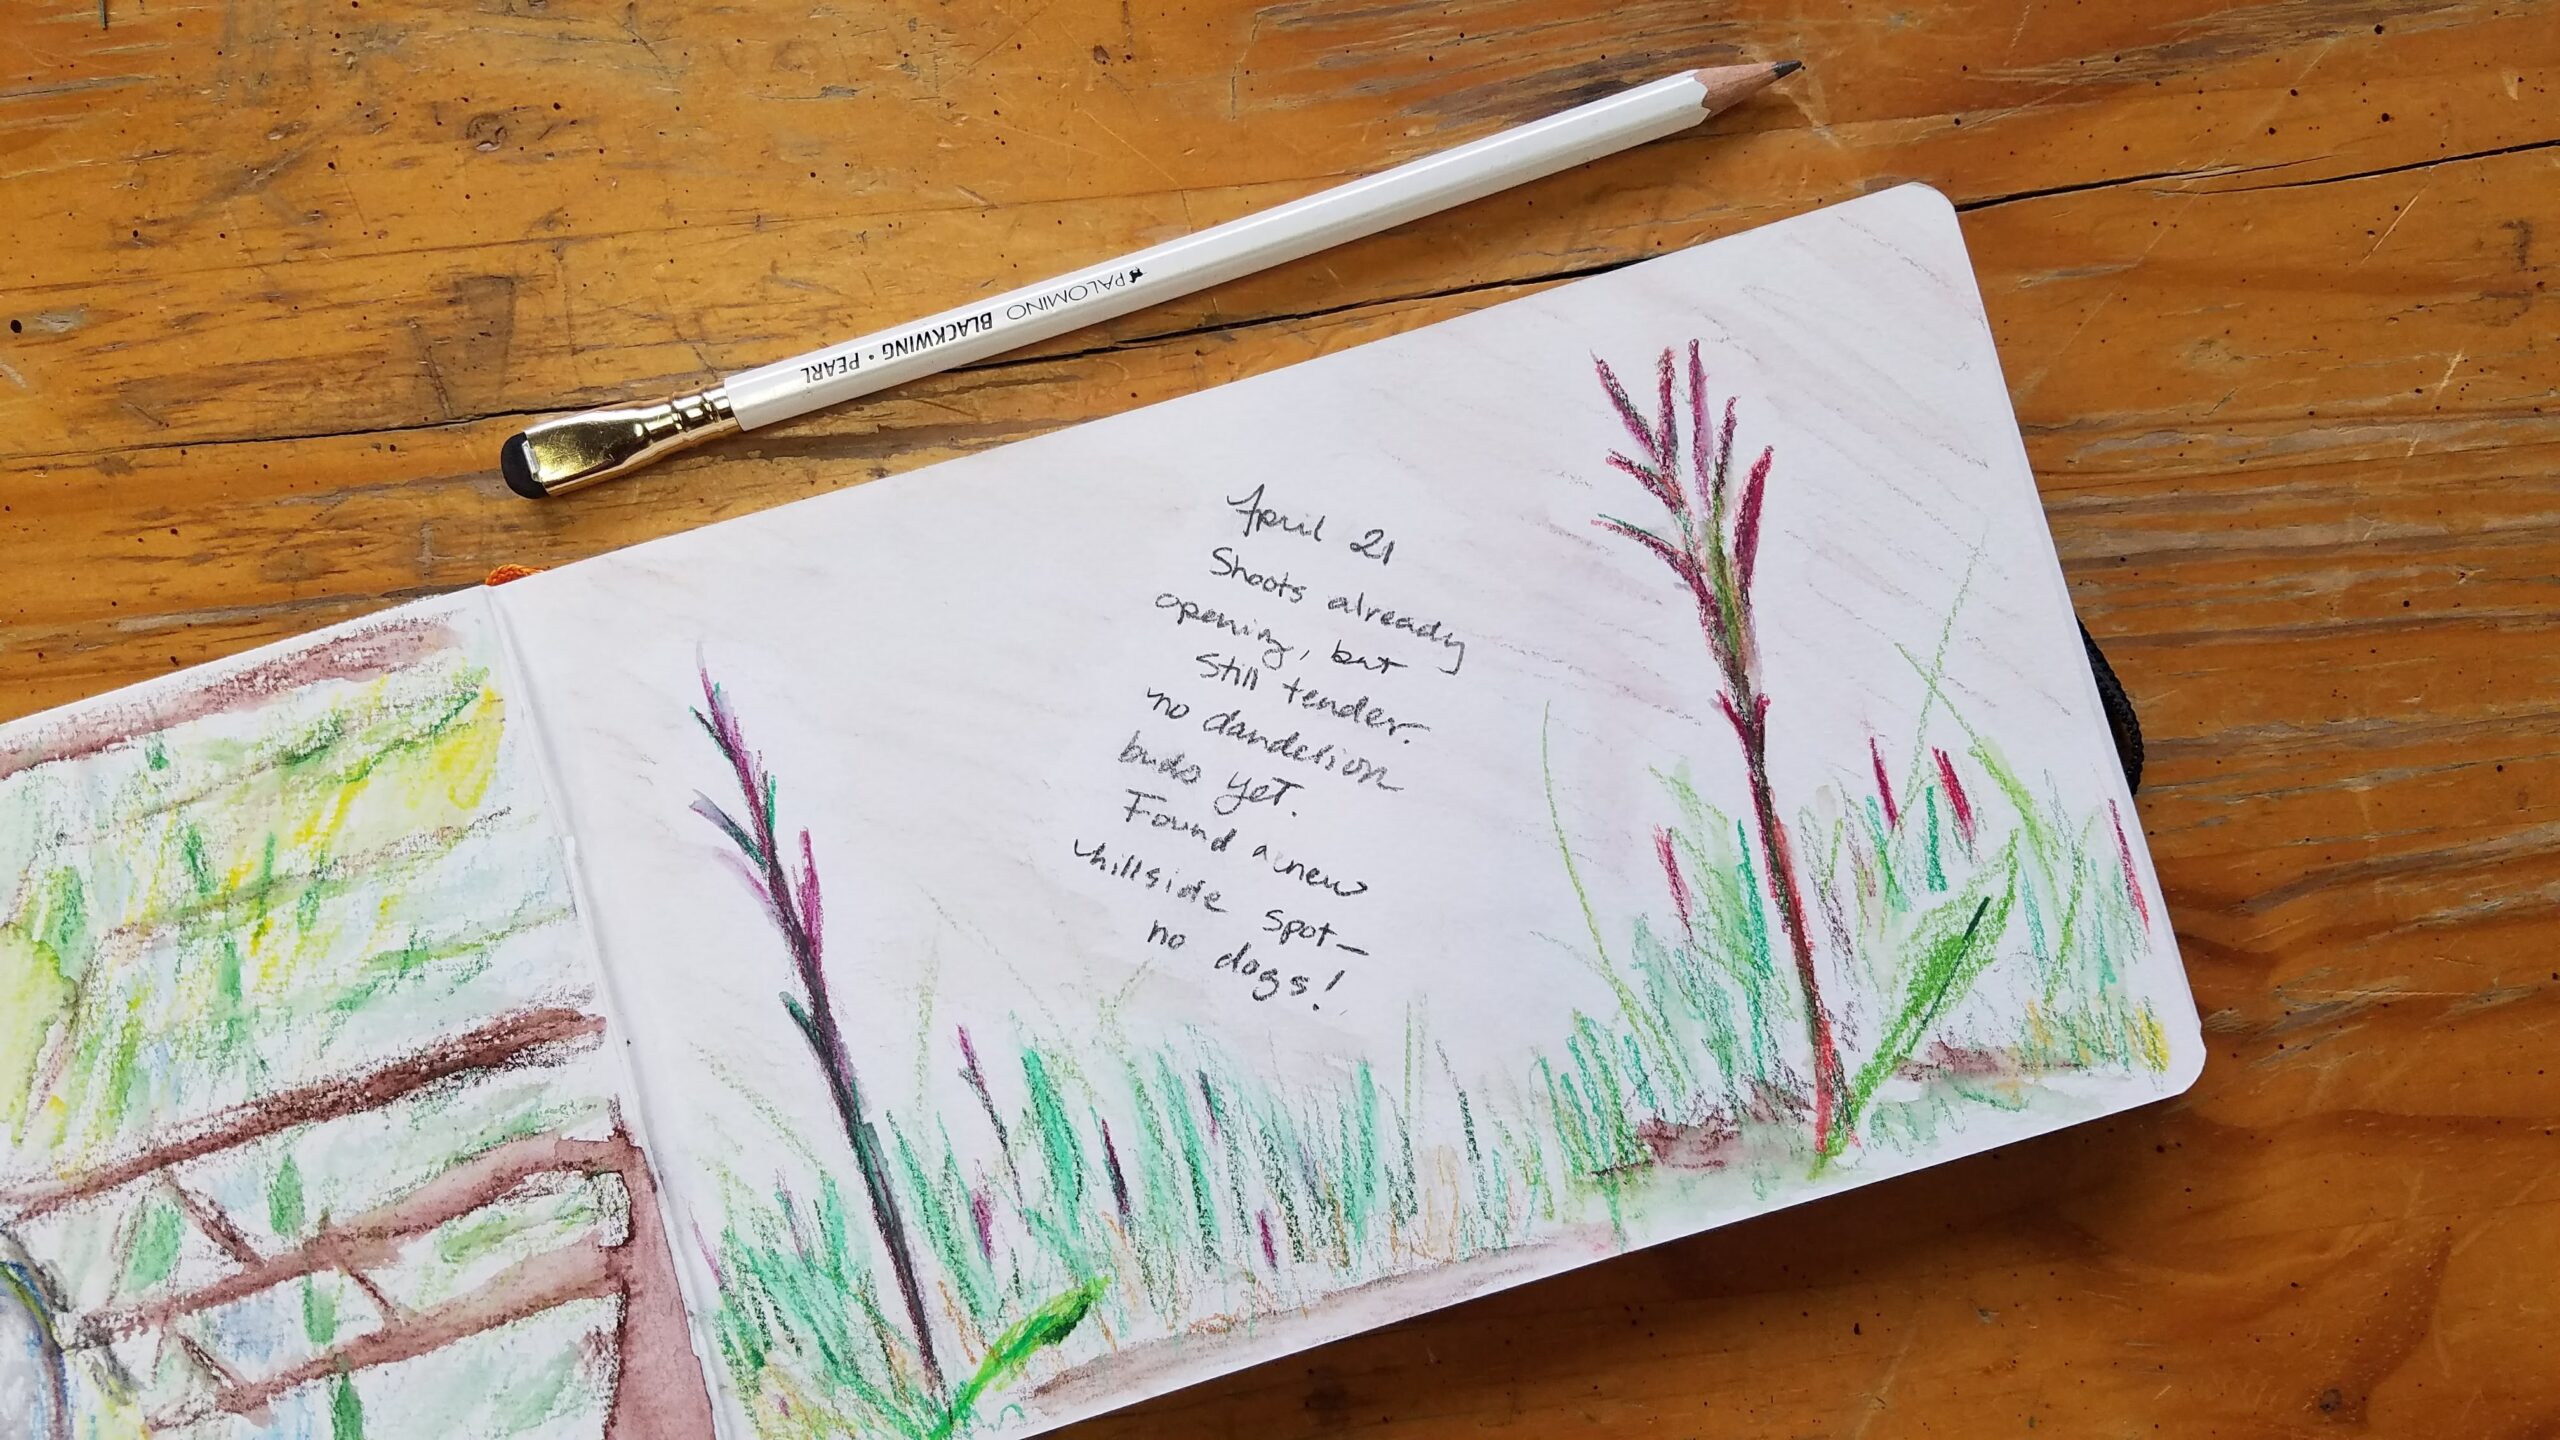 PALOMINO BLACKWING • PEARL
April 21
Shoots already
opening, but
still tender.
no dandelion
buds yet.
Found a new
hillside spot—
no dogs!